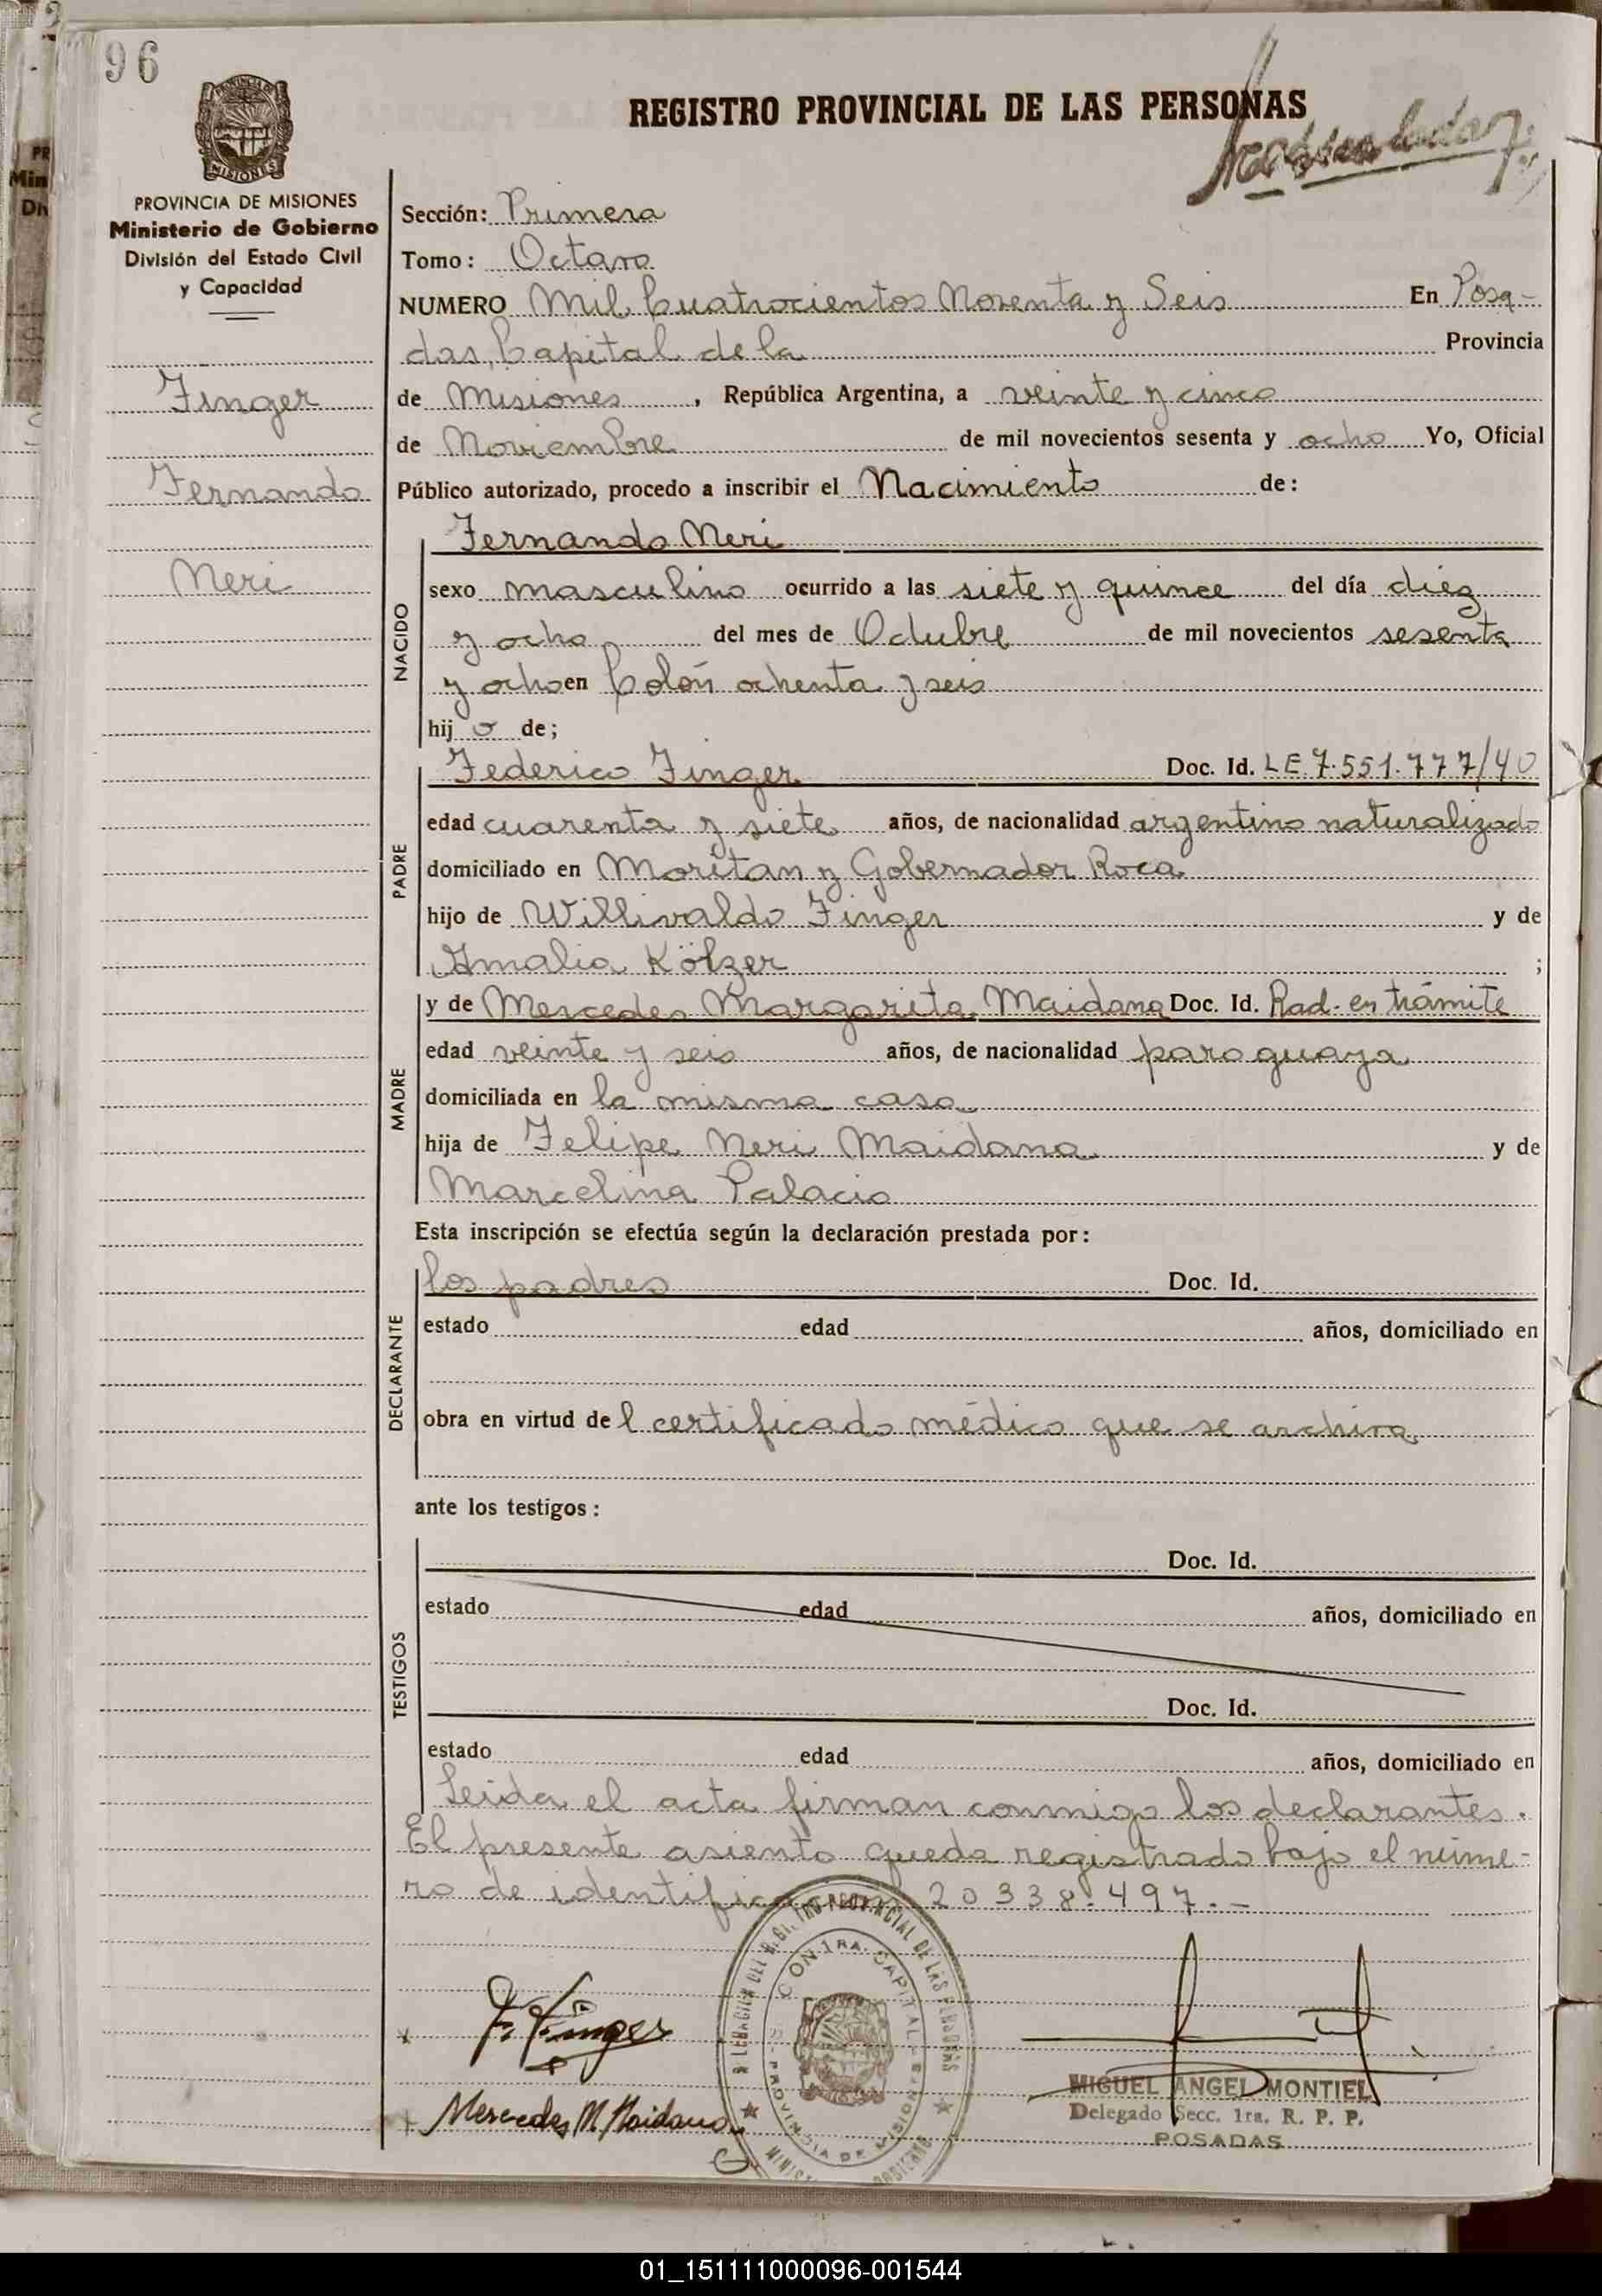 96
REGISTRO PROVINCIAL DE LAS PERSONAS
PROVINCIA DE MISIONES
Ministerio de Gobierno
División del Estado Civil
y Capacidad
Finger
Fernando
Neri
Sección: Primera
Tomo: Octavo
NUMERO Mil Cuatrocientos Noventa y Seis En Posa-
das, Capital de la Provincia
de Misiones, República Argentina, a veinte y cinco
de Noviembre de mil novecientos sesenta y ocho Yo, Oficial
Público autorizado, procedo a inscribir el Nacimiento de:
NACIDO
Fernando Neri
sexo masculino ocurrido a las siete y quince del día diez
y ocho del mes de Octubre de mil novecientos sesenta
y ocho en Colón ochenta y seis
hij o de;
PADRE
Federico Finger Doc. Id. LE 7.551.777/40
edad cuarenta y siete años, de nacionalidad argentino naturalizado
domiciliado en Moritan y Gobernador Roca
hijo de Willivaldo Finger y de
Amalia Kölzer ;
MADRE
y de Mercedes Margarita Maidana Doc. Id. Rad. en trámite
edad veinte y seis años, de nacionalidad paraguaya
domiciliada en la misma casa
hija de Felipe Neri Maidana y de
Marcelina Palacio
Esta inscripción se efectúa según la declaración prestada por:
DECLARANTE
los padres Doc. Id.
estado edad años, domiciliado en
obra en virtud de l certificado médico que se archiva
ante los testigos:
TESTIGOS
Doc. Id.
estado edad años, domiciliado en
Doc. Id.
estado edad años, domiciliado en
Leida el acta firman conmigo los declarantes.
El presente asiento queda registrado bajo el núme-
ro de 20338.497.-
F. Finger
Mercedes M. Maidana
MIGUEL ANGEL MONTIEL
Delegado Secc. 1ra. R. P. P.
POSADAS
01_151111000096-001544